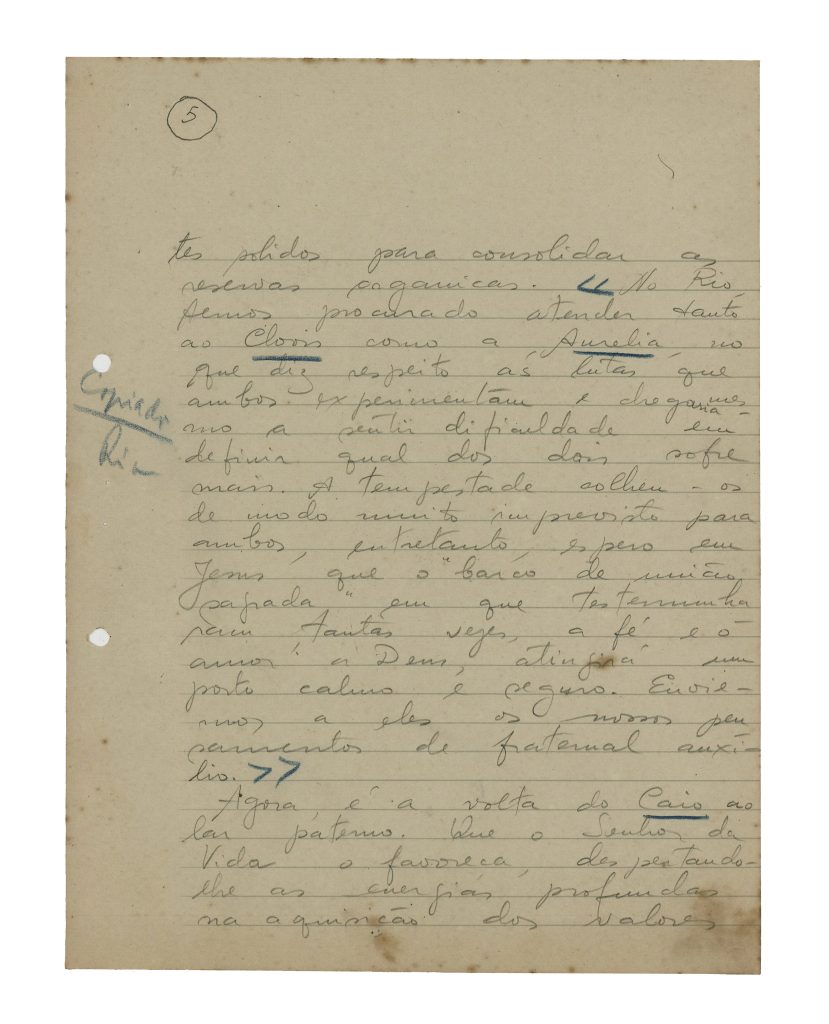 5
tes solidos para consolidar as
reservas organicas. << No Rio,
temos procurado atender tanto
ao Clovis como a Aurelia, no
que diz respeito ás lutas que
ambos experimentam e chegaria mes-
mo a sentir dificuldade em
definir qual dos dois sofre
mais. A tempestade colheu-os
de modo muito imprevisto para
ambos, entretanto, espero em
Jesus que o "barco de união
sagrada" em que testemunha
ram, tantas vezes, a fé e o
amor a Deus, atingirá um
porto calmo e seguro. Envie-
mos a eles os nossos pen
samentos de fraternal auxí-
lio. >>
Agora, é a volta do Caio ao
lar paterno. Que o Senhor da
Vida o favoreca, despertando-
lhe as energias profundas
na aquisição dos valores
Copiado
Rio